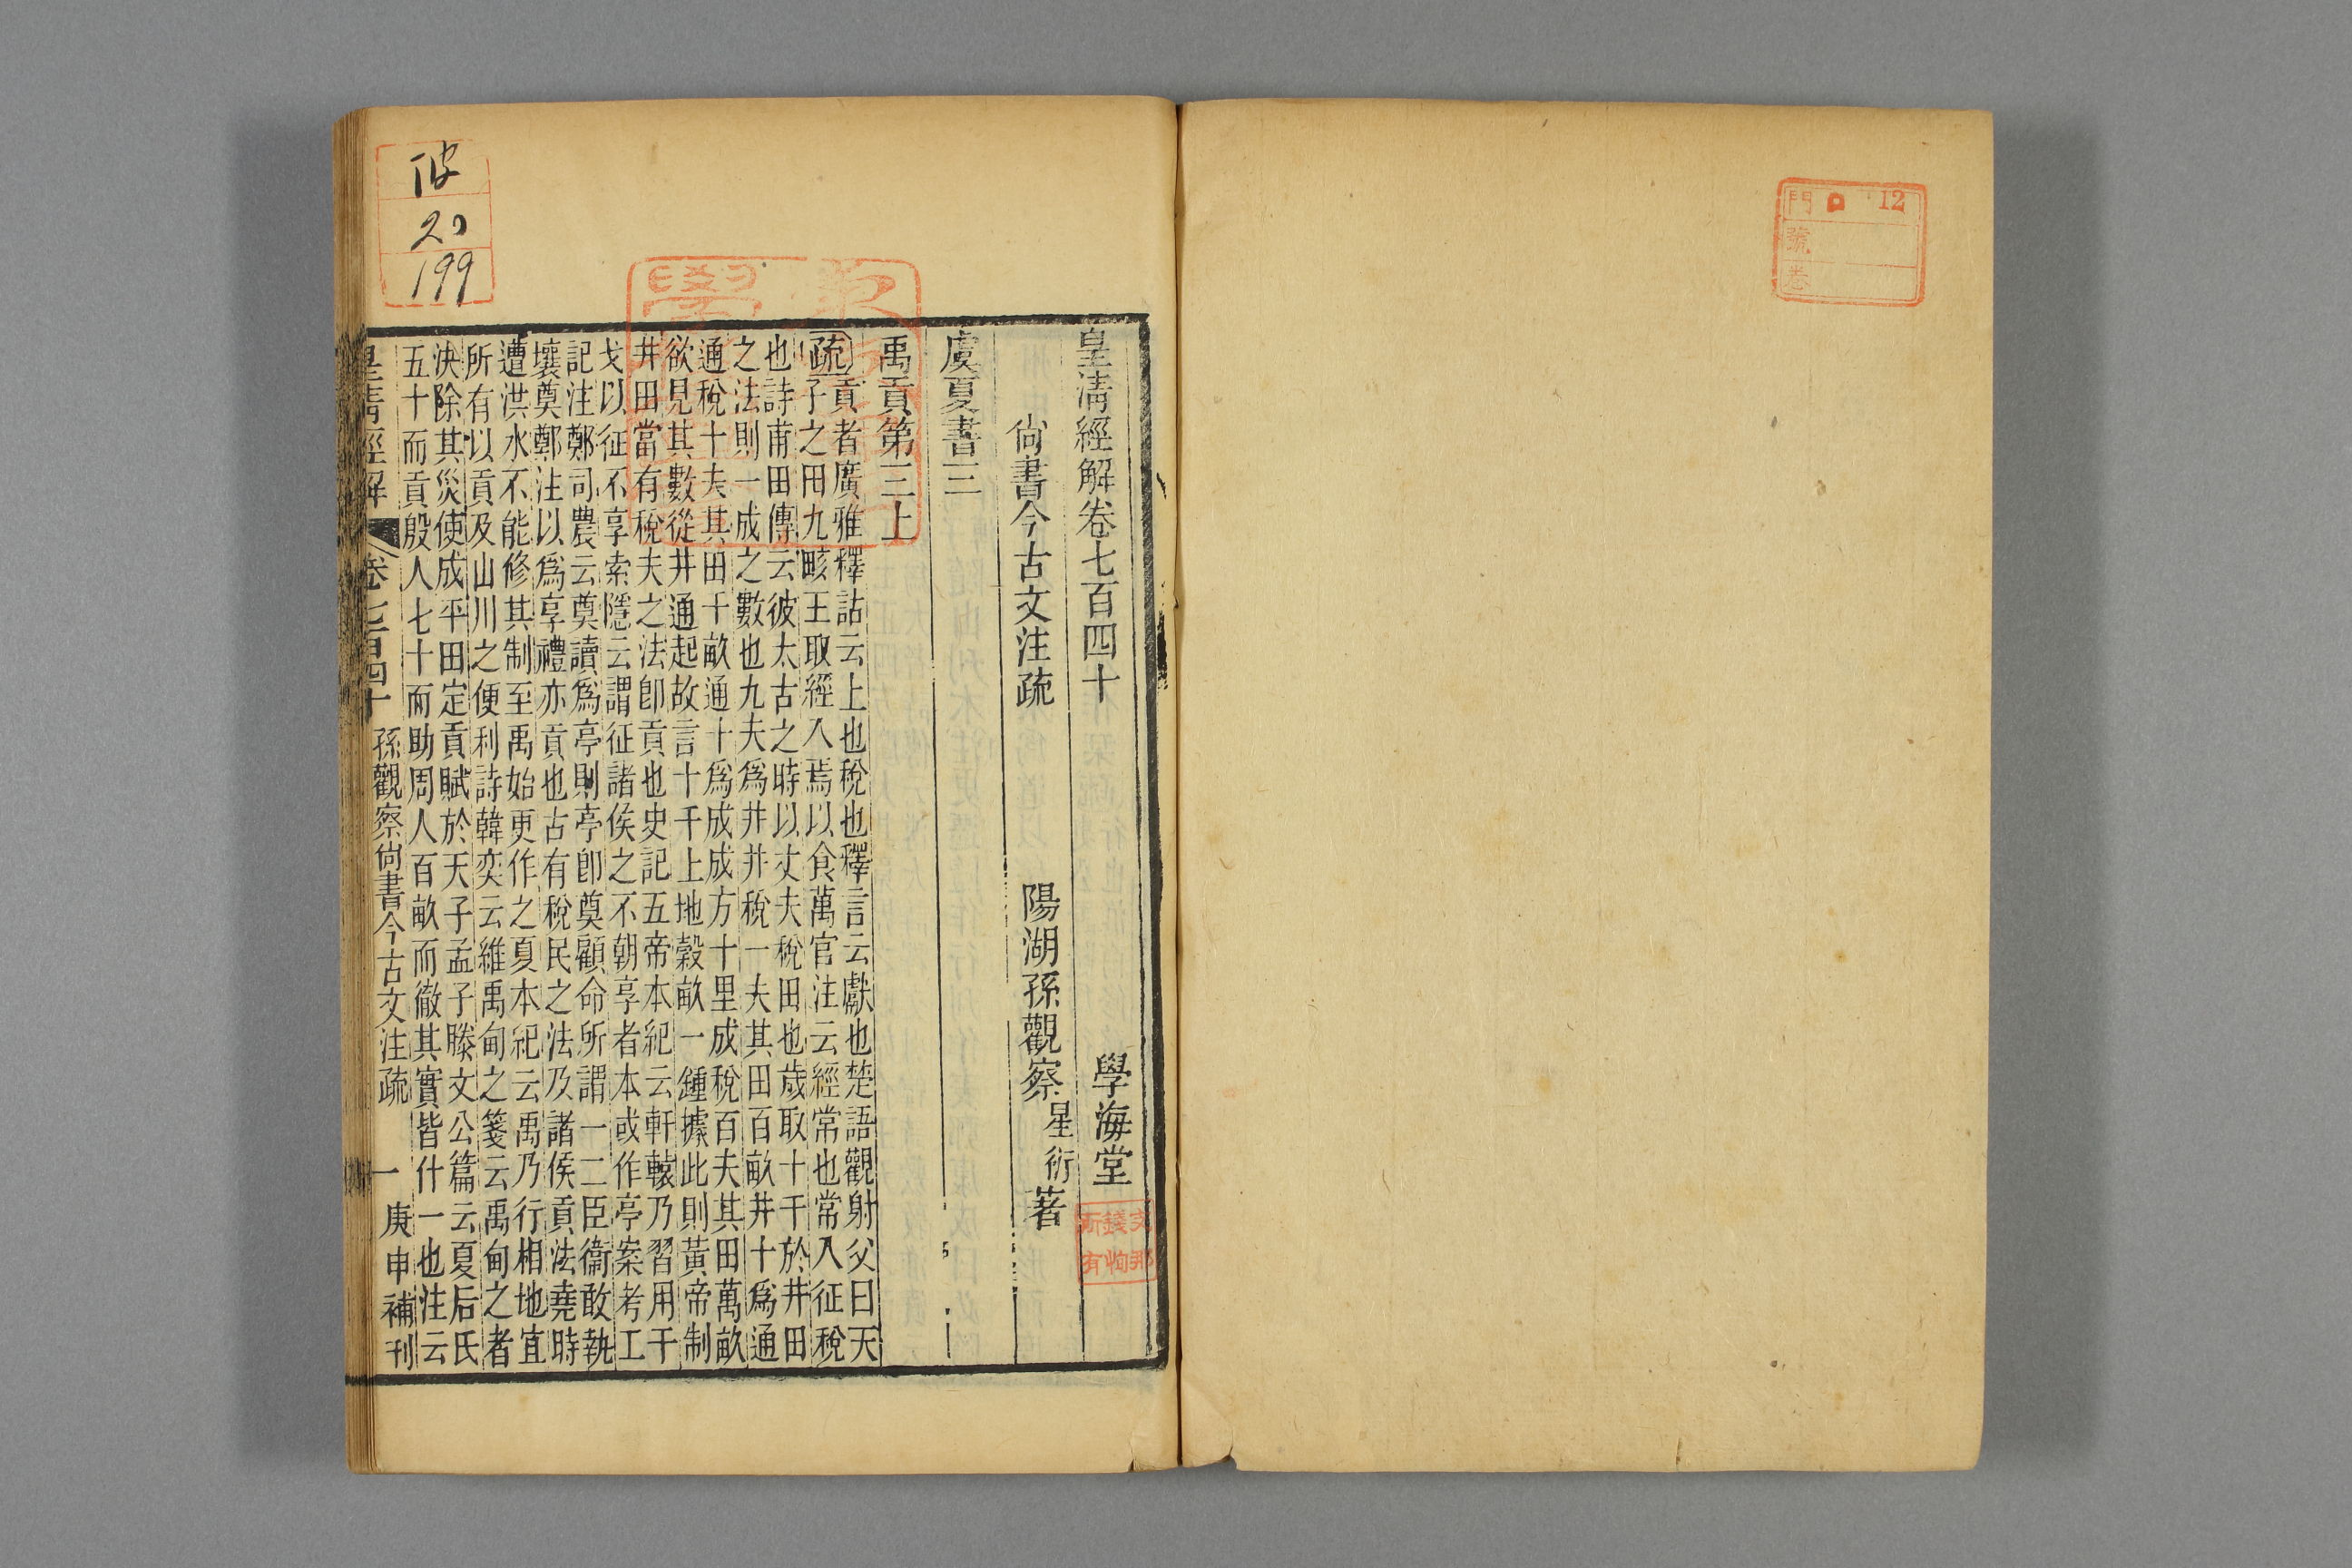 皇淸經解卷七百四十
學海堂
尙書今古文注疏
陽湖孫觀察星衍著
虞夏書三
禹貢第三上
疏貢者廣雅釋詁云上也稅也釋言云獻也楚語觀射父曰天
子之田九畡王取經入焉以食萬官注云經常也常入征稅
也詩甫田傳云彼太古之時以丈夫稅田也歲取十千於井田
之法則一成之數也九夫爲井井稅一夫其田百畝井十爲通
通稅十夫其田千畝通十爲成成方十里成稅百夫其田萬畝
欲見其數從井通起故言十千上地穀畝一鍾據此則黃帝制
井田當有稅夫之法卽貢也史記五帝本紀云軒轅乃習用干
戈以征不享索隱云謂征諸侯之不朝享者本或作亭案考工
記注鄭司農云奠讀爲亭則亭卽奠顧命所謂一二臣衞敢執
壤奠鄭注以爲享禮亦貢也古有稅民之法乃諸侯貢法堯時
遭洪水不能修其制至禹始更作之夏本紀云禹乃行相地宜
所有以貢及山川之便利詩韓奕云維禹甸之箋云禹甸之者
決除其災使成平田定貢賦於天子孟子滕文公篇云夏后氏
五十而貢殷人七十而助周人百畝而徹其實皆什一也注云
皇淸經解
卷七百四十
孫觀察尙書今古文注疏
一
庚申補刊
20
199
門
12
號
卷